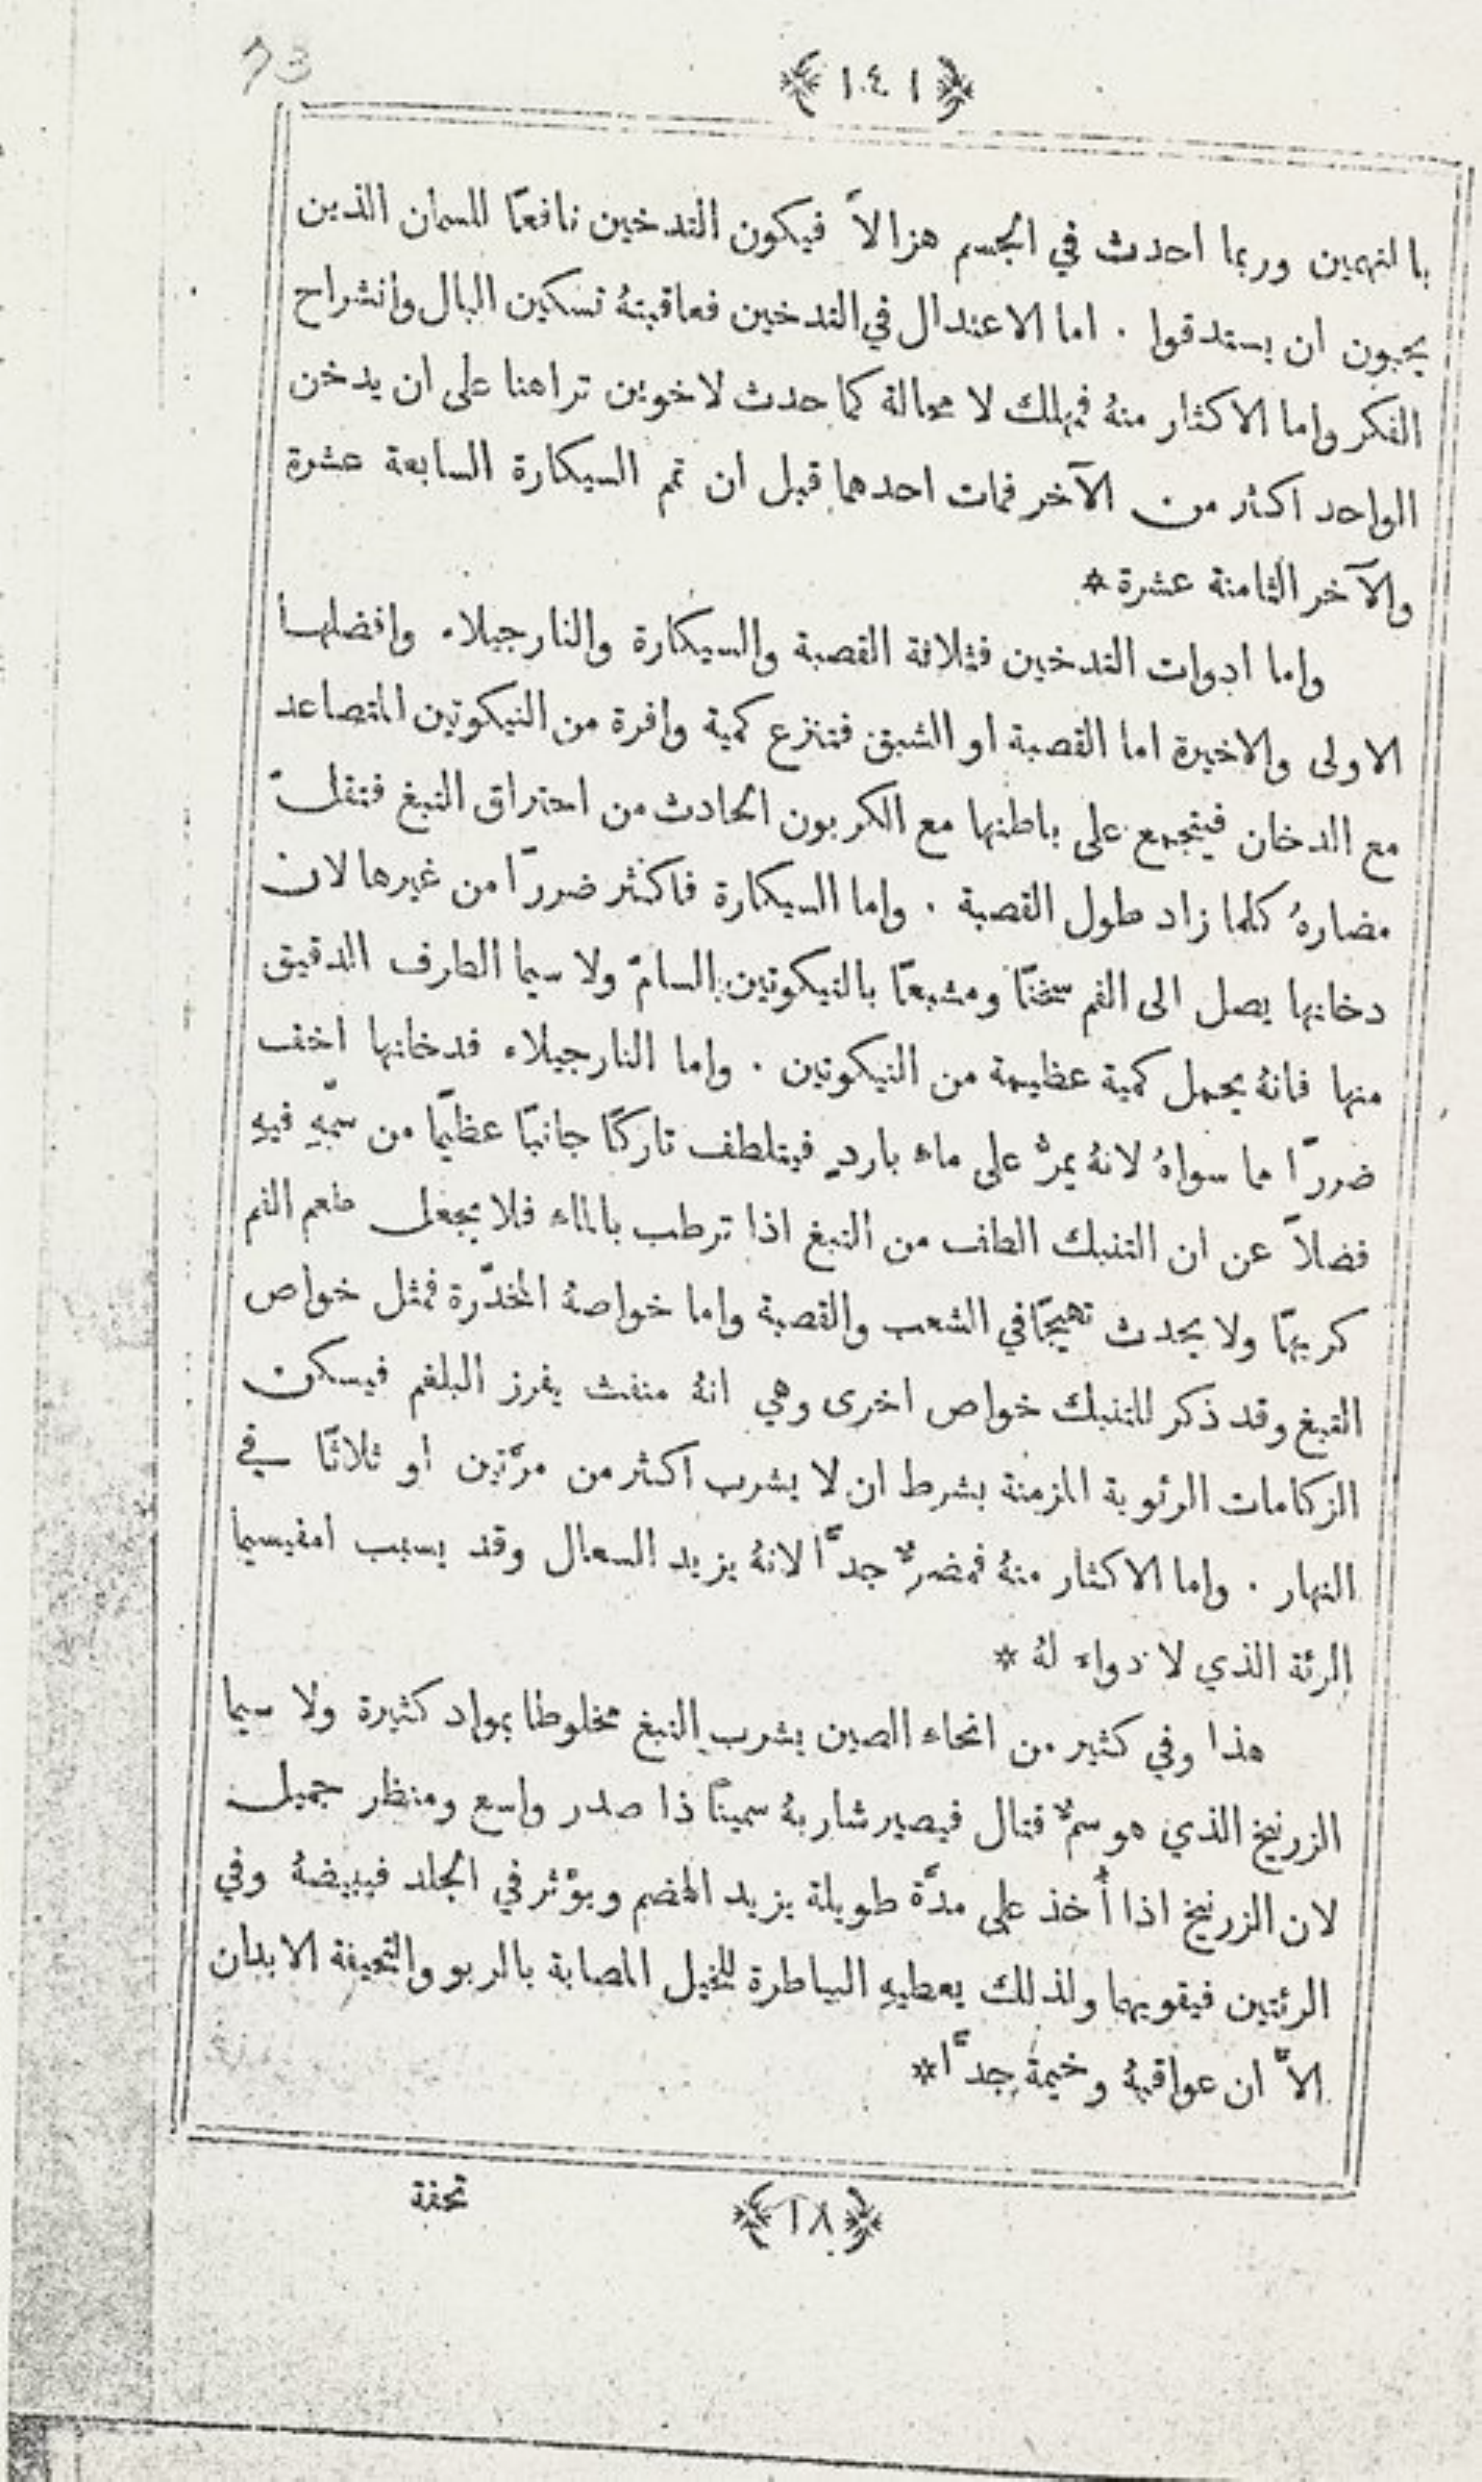 73
﴿١٤١﴾
بالنهمين وربما احدث في الجسم هزالاً فيكون التدخين نافعًا للسمان الذين
يحبون ان يستدقوا . اما الاعتدال في التدخين فعاقبتهُ تسكين البال وانشراح
الفكر واما الاكثار منهُ فيهلك لا محالة كما حدث لاخوين تراهنا على ان يدخن
الواحد اكثر من الآخر فمات احدهما قبل ان تم السيكارة السابعة عشرة
والآخر الثامنة عشرة *
واما ادوات التدخين فثلاثة القصبة والسيكارة والنارجيلاء وافضلها
الاولى والاخيرة اما القصبة او الشبق فتنزع كمية وافرة من النيكوتين المتصاعد
مع الدخان فيتجمع على باطنها مع الكربون الحادث من احتراق التبغ فتقلّ
مضارهُ كلما زاد طول القصبة . واما السيكارة فاكثر ضررًا من غيرها لان
دخانها يصل الى الفم سخنًا ومشبعًا بالنيكوتين السامّ ولا سيما الطرف الدقيق
منها فانهُ يحمل كمية عظيمة من النيكوتين . واما النارجيلاء فدخانها اخف
ضررًا مما سواهُ لانهُ يمرُّ على ماء باردٍ فيتلطف تاركًا جانبًا عظيمًا من سمّهِ فيهِ
فضلاً عن ان التنبك الطف من التبغ اذا ترطب بالماء فلا يجعل طعم الفم
كريهًا ولا يحدث تهيجًا في الشعب والقصبة واما خواصهُ المخدّرة فمثل خواص
التبغ وقد ذكر للتنبك خواص اخرى وهي انهُ منفث يفرز البلغم فيسكن
الزكامات الرئوية المزمنة بشرط ان لا يشرب اكثر من مرَّتين او ثلاثًا في
النهار . واما الاكثار منهُ فمضرٌّ جدًّا لانهُ يزيد السعال وقد يسبب امفيسيما
الرئة الذي لا دواء لهُ *
هذا وفي كثير من انحاء الصين يشرب التبغ مخلوطا بمواد كثيرة ولا سيما
الزرنيخ الذي هو سمٌّ قتال فيصير شاربهُ سمينًا ذا صدر واسع ومنظر جميل
لان الزرنيخ اذا أُخذ على مدَّة طويلة يزيد الهضم ويؤثر في الجلد فيبيضهُ وفي
الرئتين فيقويهما ولذلك يعطيهِ البياطرة للخيل المصابة بالربو والنحيفة الابدان
الاَّ ان عواقبهُ وخيمة جدًّا *
﴿١٨﴾
تحفة